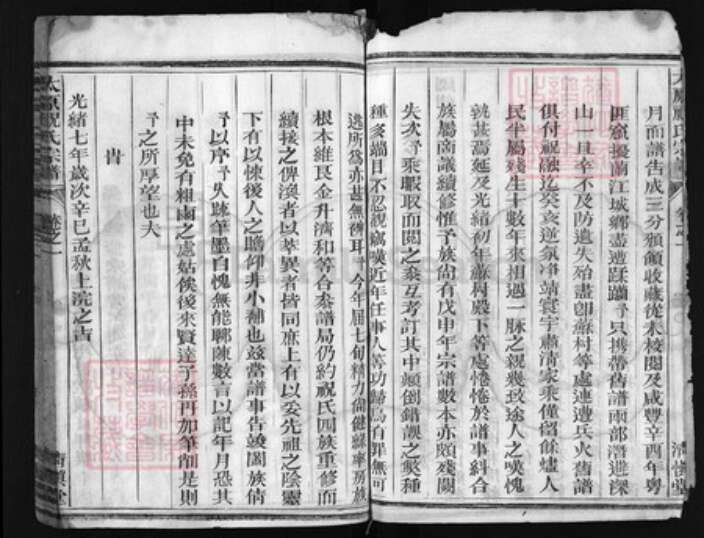 月而譜告成三分頒領收藏從未校閱及咸豐辛酉年粵
匪竄擾蘭江城鄉盡遭蹂躪予只携帶舊譜兩部潛避深
山一旦幸不及防遺失殆盡卽蘇村等處連遭兵火舊譜
俱付祝融迄癸亥逆氛淨靖寰宇肅清家乘僅留餘燼人
民半屬殘生十數年來相遇一脉之親幾致途人之嘆愧
孰甚焉延及光緒初年蘇村殿下等處惓惓於譜事糾合
族屬商議續修惟予族尚有戊申年宗譜數本亦頗殘闕
失次予乘暇取而閱之叅互考訂其中顛倒錯亂之獘種
種多端目不忍視竊嘆近年任事人等功歸烏有罪無可
逃所為亦甚無
耳予今年屆七旬精力尚健錄率房族
根本維艮金升濟和等合叅譜局仍約祝氏四族重修而
續接之俾渙者以萃異者皆同庶上有以妥先祖之陰靈
下有以悚後人之瞻仰非小補也茲當譜事告竣闔族倩
予以序予久疎筆墨自愧無能聊陳數言以記年月恐其
中未免有粗鹵之處姑俟後來賢達子孫再加筆削是則
予之所厚望也夫
旹
光緒七年歲次辛巳孟秋上浣之吉
太原祝氏宗譜
卷之一